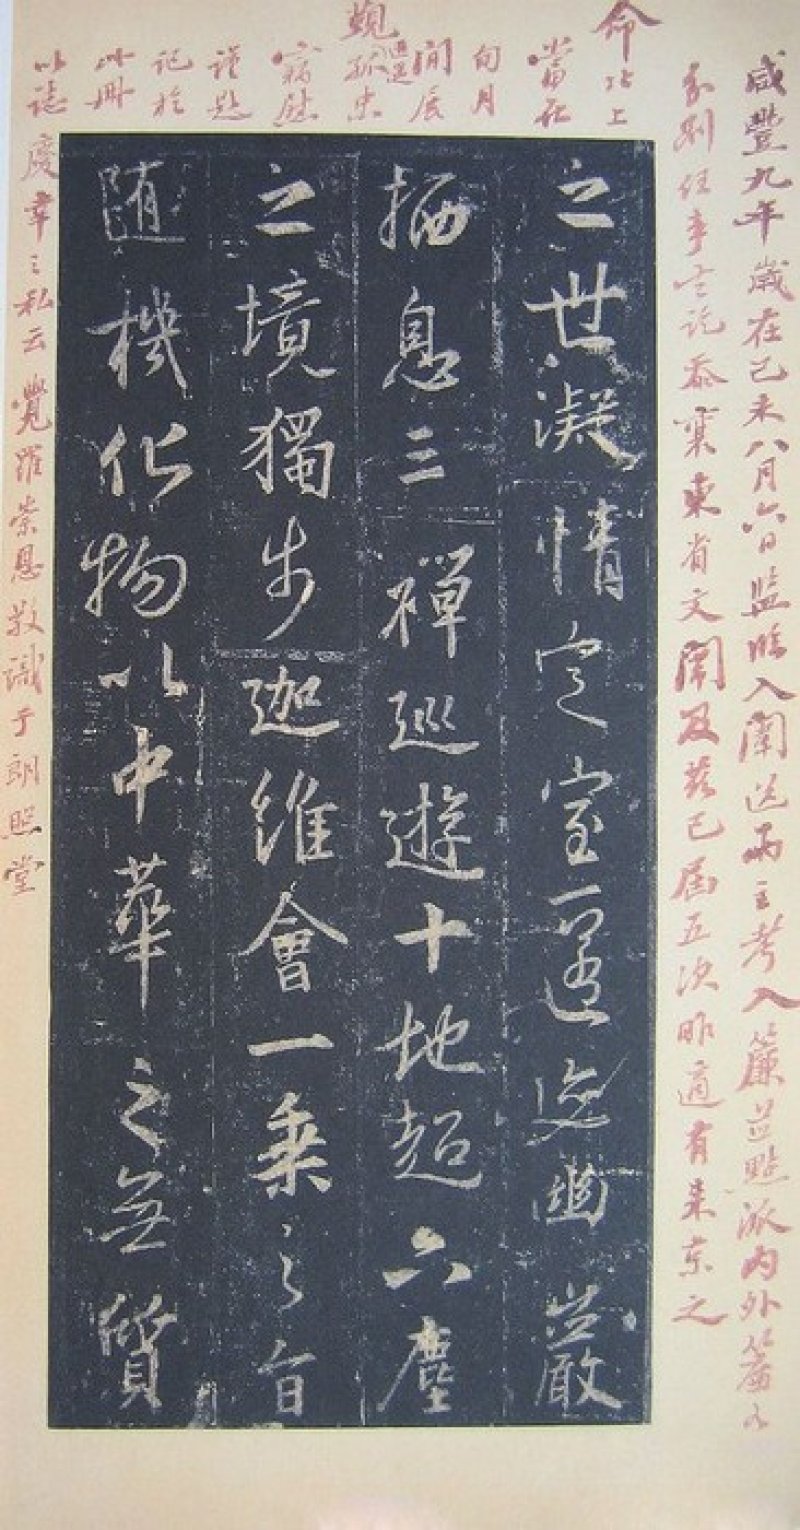 咸豐九年歲在己未八月六日監臨入闈送兩主考入簾並點派內外簾各
分別任事訖忝襄東省文闈及茲已屆五次昨適有來京之
命北上
當在
旬月
間
孤忠
竊慰
謹題
記於
此冊
以誌慶幸之私云覺羅崇恩敬識于朗照堂
之世凝情定室匿迹幽巖
栖息三禪巡遊十地超六塵
之境獨步迦維會一乘之旨
隨機化物以中華之無質